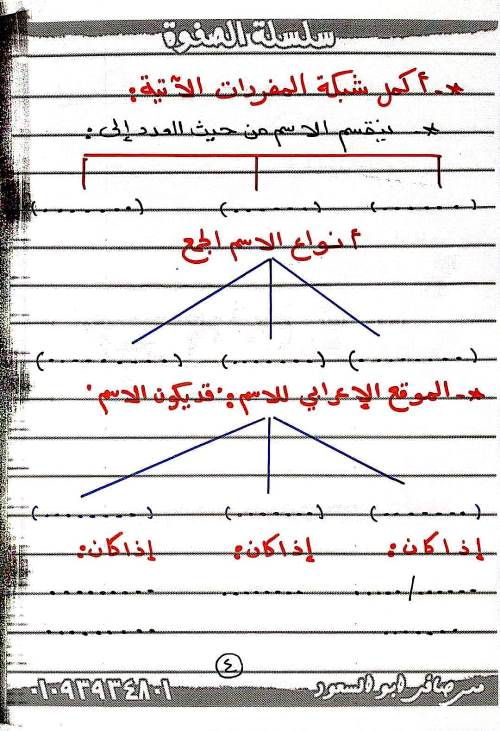 سلسلة الصفوة
*- أكمل شبكة المفردات الآتية:
*- ينقسم الاسم من حيث العدد إلى:
(..........) (..........) (..........)
أنواع الاسم الجمع
(..........) (..........) (..........)
*- الموقع الإعرابي للاسم: "قد يكون الاسم"
(..........) (..........) (..........)
إذا كان: إذا كان: إذا كان:
....../...... .......... ..........
...... ..........
٤
أبو السعود ٠١٠٩٣٩٣٤٨٠١